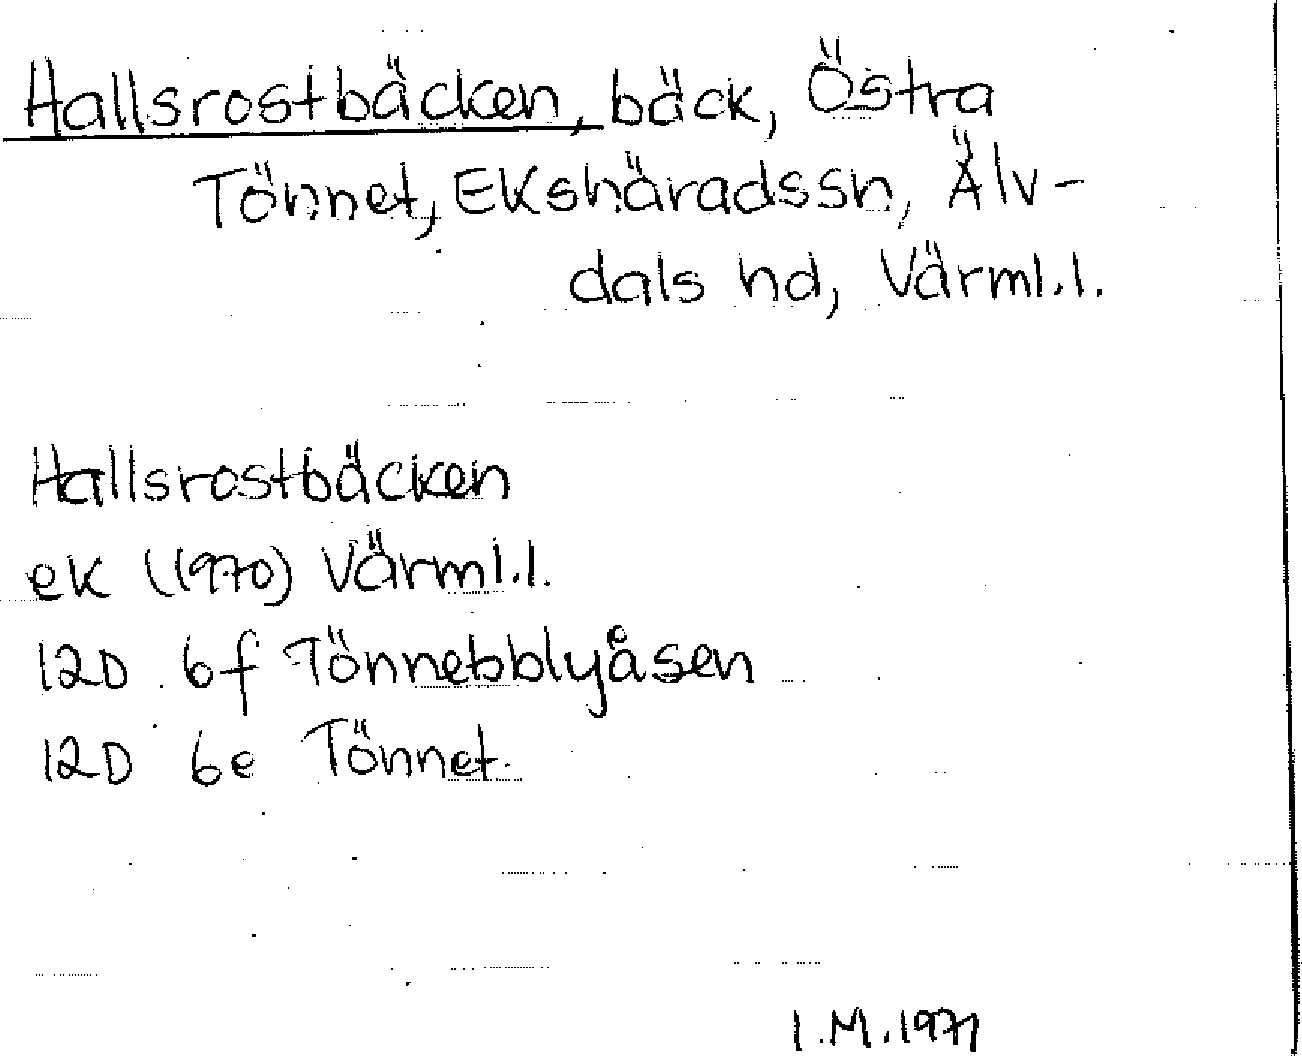 Hallsrostbäcken, bäck, Östra
Tönnet, Ekshäradssn, Älv-
dals hd, Värml.l.
Hallsrostbäcken
ek (1970) Värml.l.
12D 6f Tönnebblyåsen
12D 6e Tönnet.
I.M.1971